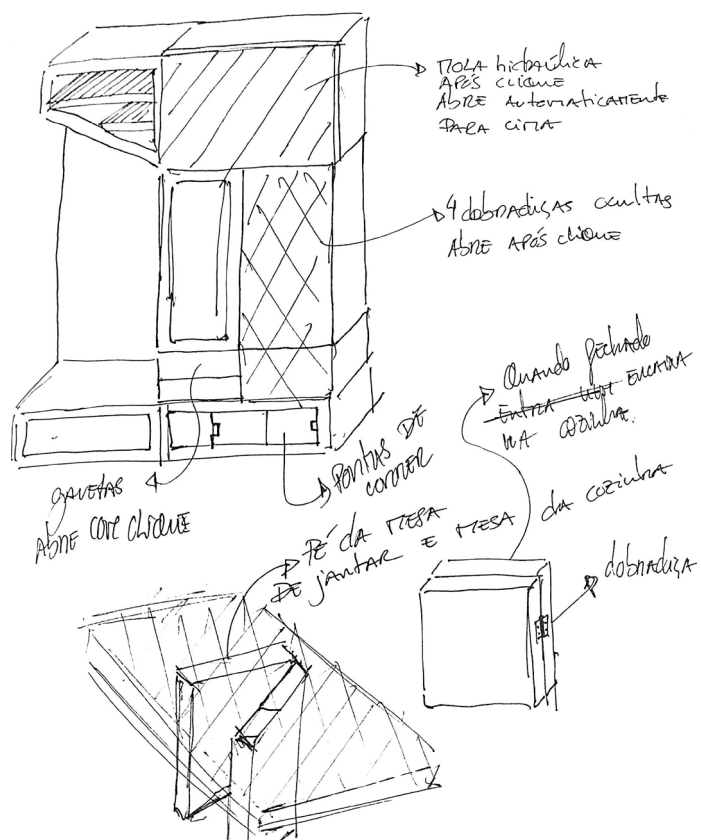 MOLA hidRAÚLICA
APÓS CLIQUE
ABRE AUTOMATICAMENTE
PARA CIMA
4 dobradiças ocultas
ABRE APÓS clique
Quando fechado
ENTRA UM ENCAIXA
NA COZINHA.
gavetas
ABRE COM CLIQUE
PORTAS DE
CORRER
PÉ da MESA
DE jantar E MESA da cozinha
dobradiça